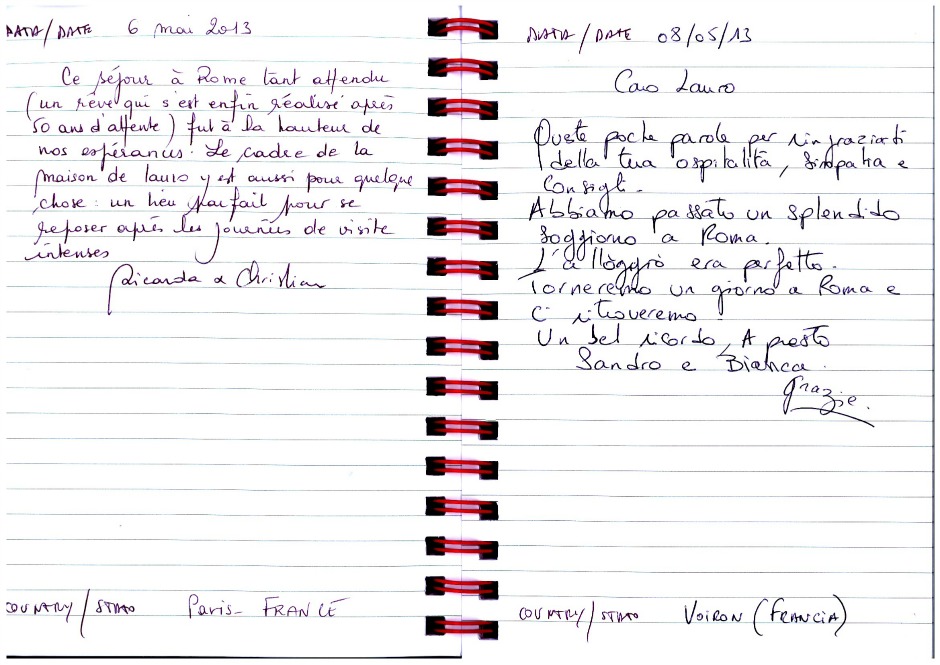 DATA/DATE 6 mai 2013
Ce séjour à Rome tant attendu
(un rêve qui s'est enfin réalisé après
50 ans d'attente) fut à la hauteur de
nos espérances. Le cadre de la
maison de lauro y est aussi pour quelque
chose : un lieu parfait pour se
reposer après les journées de visite
intenses
Ricarda & Christian
COUNTRY/STATO Paris- FRANCE
DATA/DATE 08/05/13
Caro Lauro
Queste poche parole per ringraziarti
della tua ospitalità, simpatia e
Consigli.
Abbiamo passato un splendido
soggiorno a Roma.
L'alloggio era perfetto.
Torneremo un giorno a Roma e
Ci ritroveremo !
Un bel ricordo, A presto
Sandro e Bianca.
Grazie.
COUNTRY/STATO VOIRON (FRANCIA)